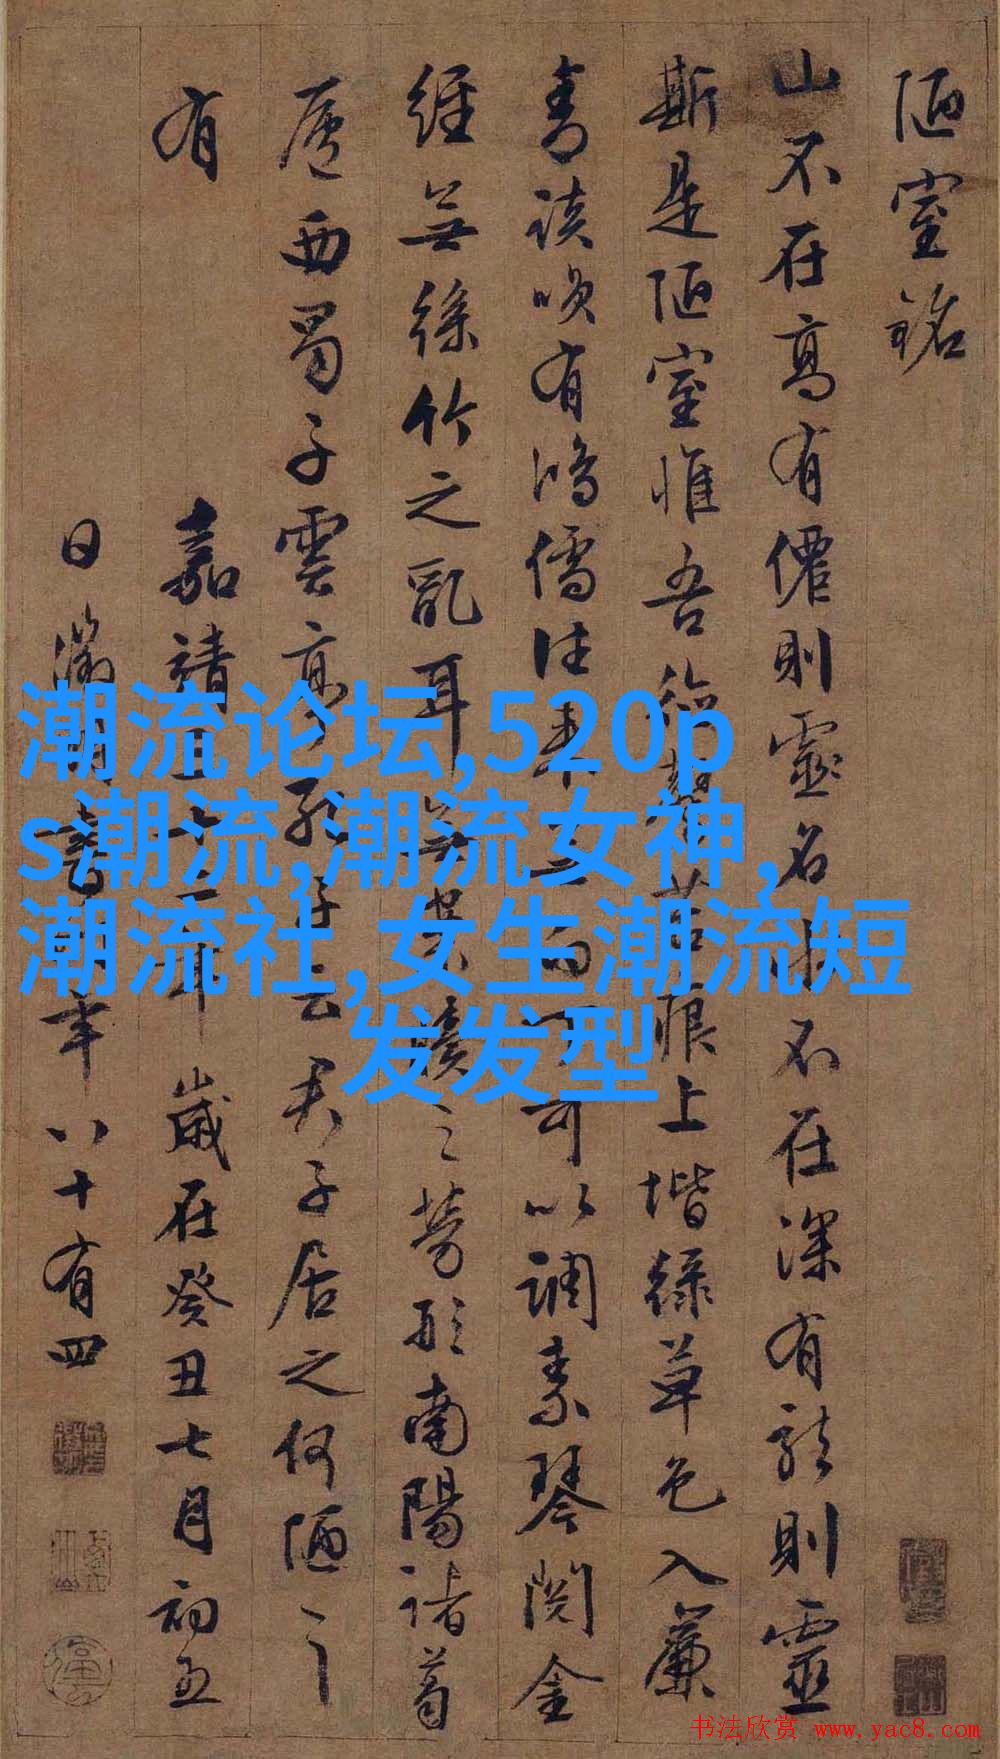 陋室銘
山不在高有僊則靈名不在深有龍則靈
斯是陋室惟吾德馨苔痕上堦綠草色入簾
青談咲有鴻儒往来可以調素琴閱金
經無絲竹之亂耳無案牘之勞形南陽諸葛
廬西蜀子雲亭孔子云君子居之何陋之
有 嘉靖三十二年歲在癸丑七月初五
日徵明書時年八十有四
潮流论坛,520p
s潮流,潮流女神,
潮流社,女生潮流短
发发型
书法欣赏 www.yac8.com